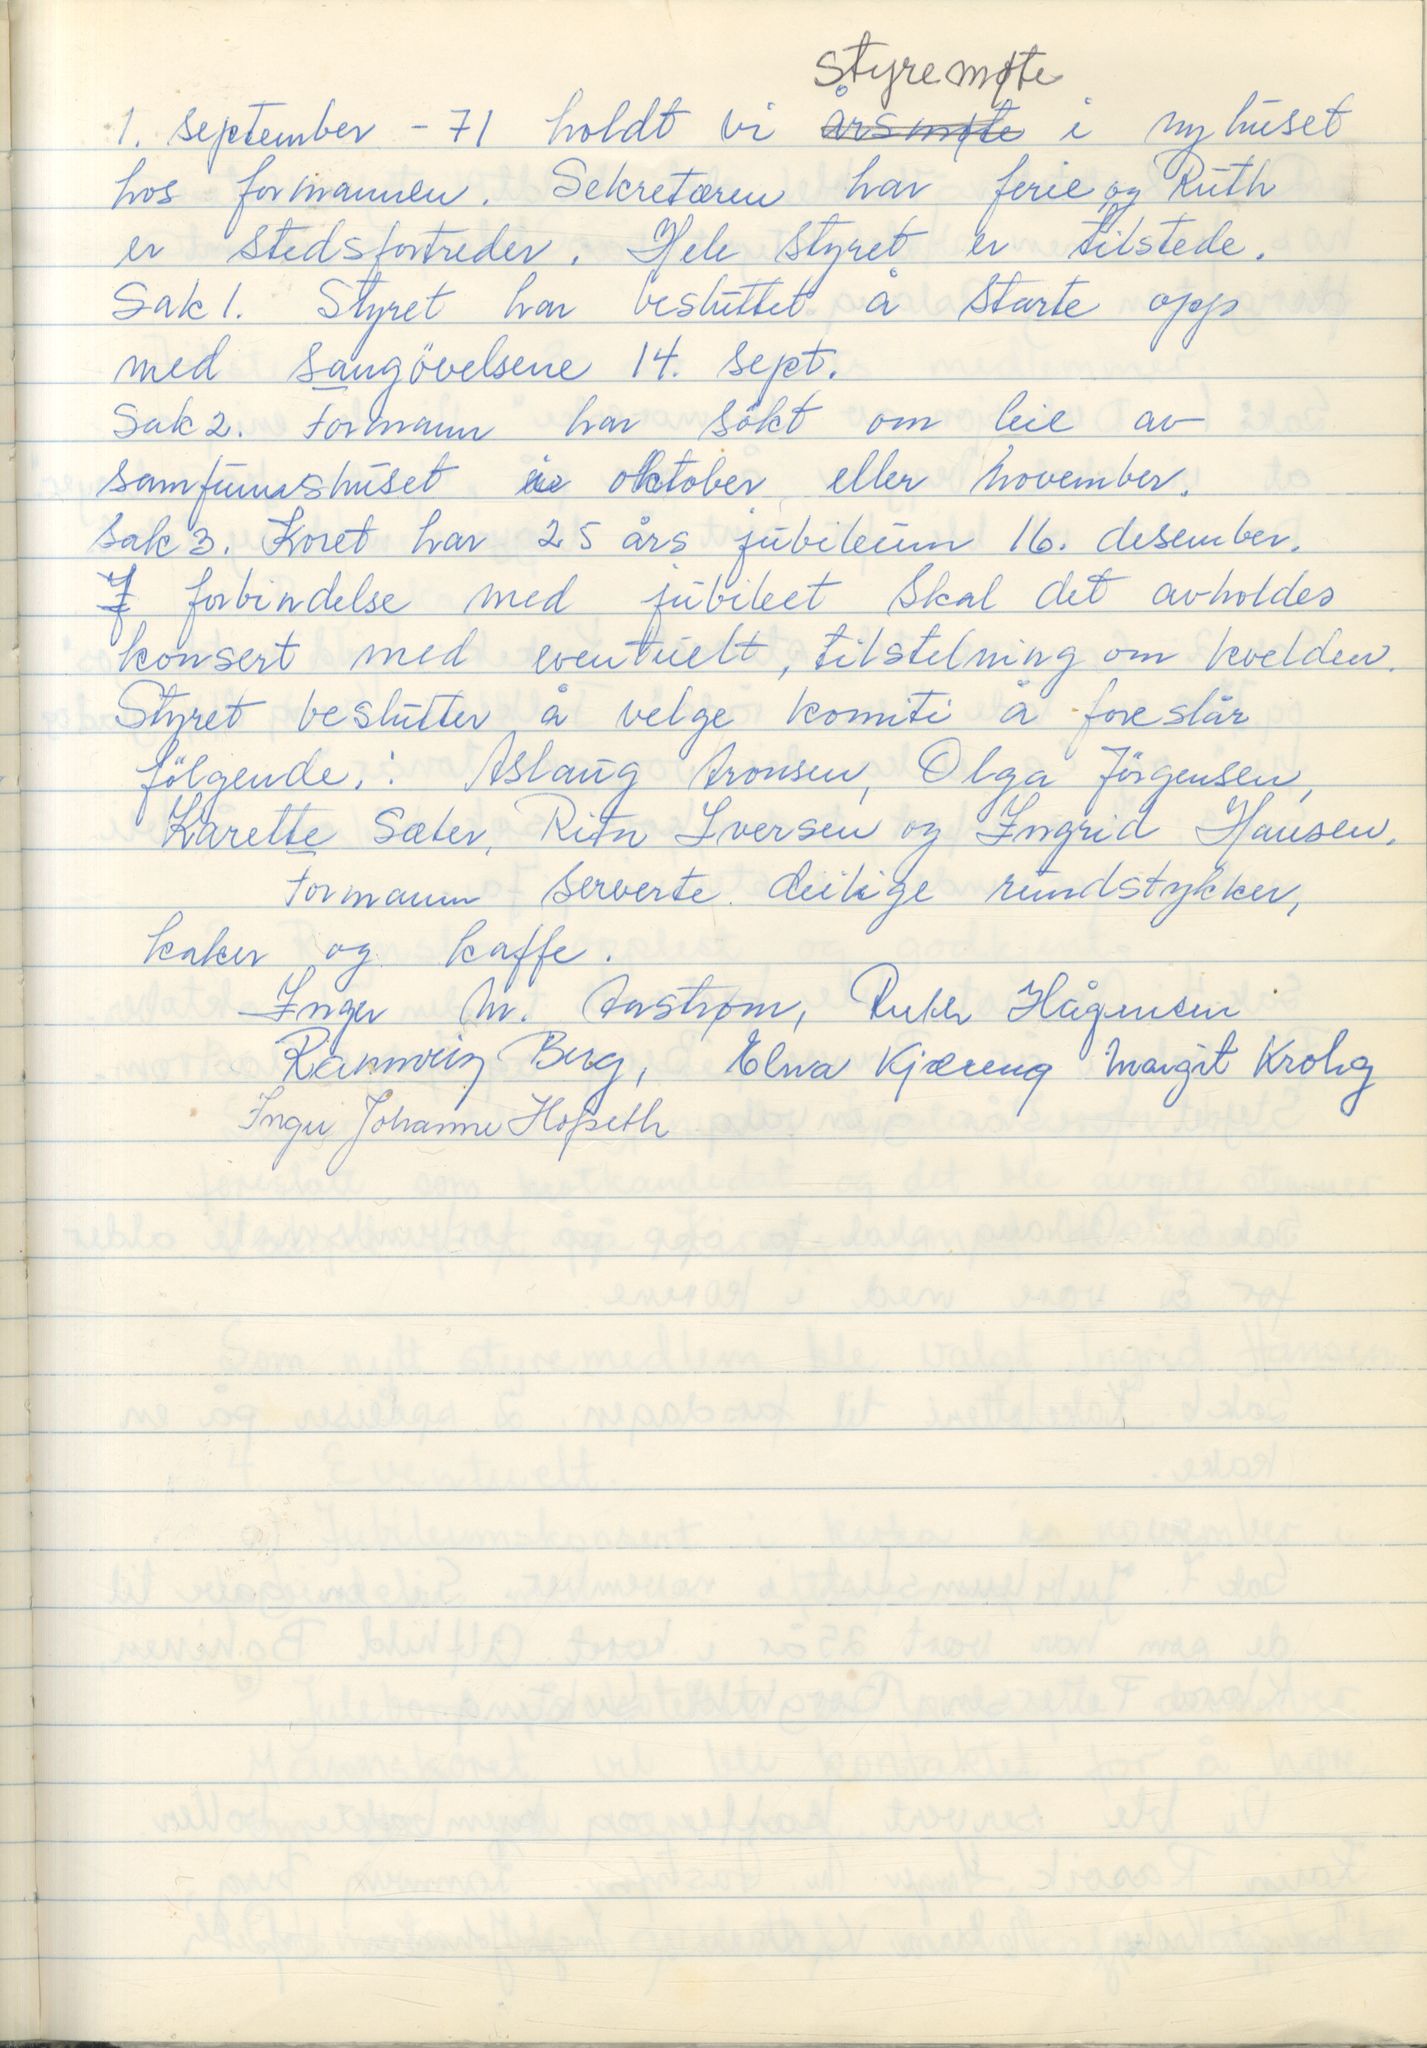 Styremøte
1. september - 71 holdt vi årsmøte i nyhuset
hos formannen. Sekretæren har ferie og Ruth
er stedsfortreder. Hele styret er tilstede.
Sak 1. Styret har besluttet å starte opp
med sangövelsene 14. sept.
Sak 2. Formann har sökt om leie av
samfunnshuset i oktober eller november.
Sak 3. Koret har 25 års jubileum 16. desember.
I forbindelse med jubileet skal det avholdes
konsert med eventuelt, tilstelning om kvelden.
Styret beslutter å velge komiti å foreslår
fölgende: Aslaug Aronsen, Olga Jörgensen,
Karette Sæter, Ritn Iversen og Ingrid Hansen.
Formann serverte deilige rundstykker,
kaker og kaffe.
Inger M. Aastrøm, Ruth Hågensen
Rannveig Berg, Elna Kjæreng Margit Krohg
Inger Johanne Hopseth